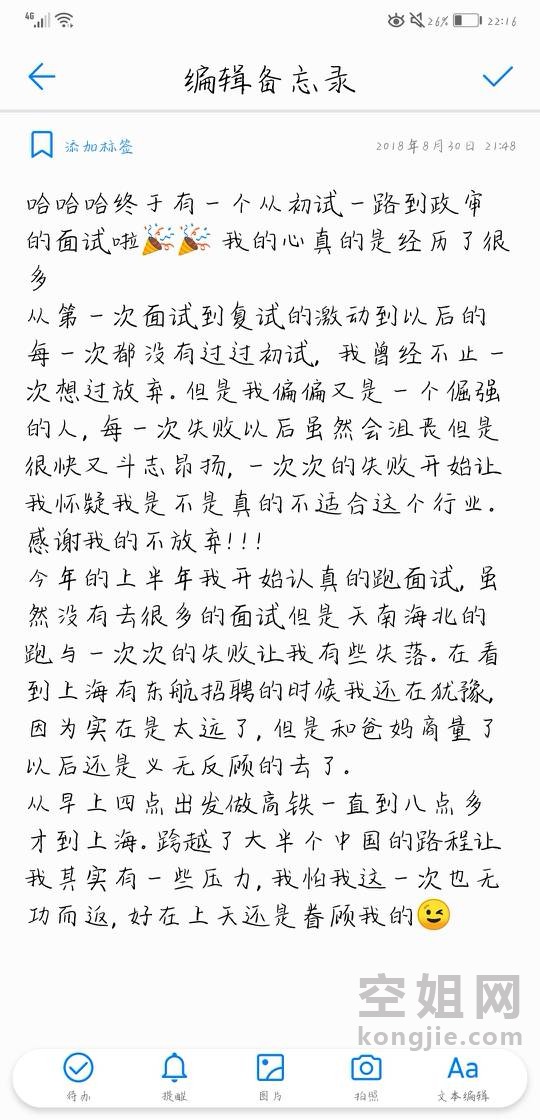 4G 26% 22:16
编辑备忘录
添加标签 2018年8月30日 21:48
哈哈哈终于有一个从初试一路到政审
的面试啦🎉🎉 我的心真的是经历了很
多
从第一次面试到复试的激动到以后的
每一次都没有过过初试, 我曾经不止一
次想过放弃.但是我偏偏又是一个倔强
的人,每一次失败以后虽然会沮丧但是
很快又斗志昂扬,一次次的失败开始让
我怀疑我是不是真的不适合这个行业.
感谢我的不放弃!!!
今年的上半年我开始认真的跑面试,虽
然没有去很多的面试但是天南海北的
跑与一次次的失败让我有些失落.在看
到上海有东航招聘的时候我还在犹豫,
因为实在是太远了,但是和爸妈商量了
以后还是义无反顾的去了.
从早上四点出发做高铁一直到八点多
才到上海.跨越了大半个中国的路程让
我其实有一些压力,我怕我这一次也无
功而返,好在上天还是眷顾我的😉
空姐网
kongjie.com
待办 提醒 图片 拍照 文本编辑
Aa